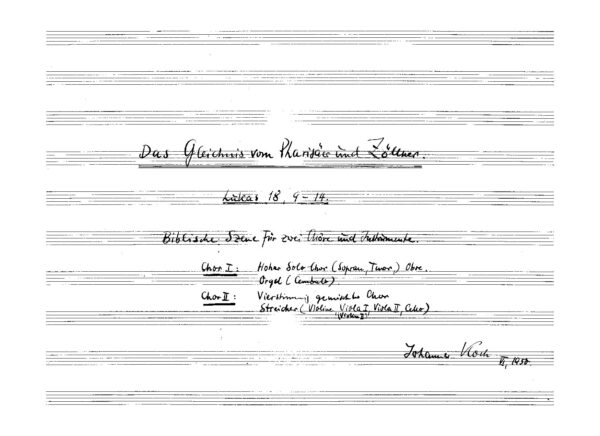 Das Gleichnis vom Pharisäer und Zöllner.
Lukas 18, 9-14.
Biblische Szene für zwei Chöre und Instrumente.
Chor I: Hoher Solo Chor (Sopran, Tenor,) Oboe.
Orgel (Cembalo)
Chor II: Vierstimmig gemischter Chor
Streicher (Violine Viola I, Viola II, Cello)
"Violine II"
Johannes Koch
1950.